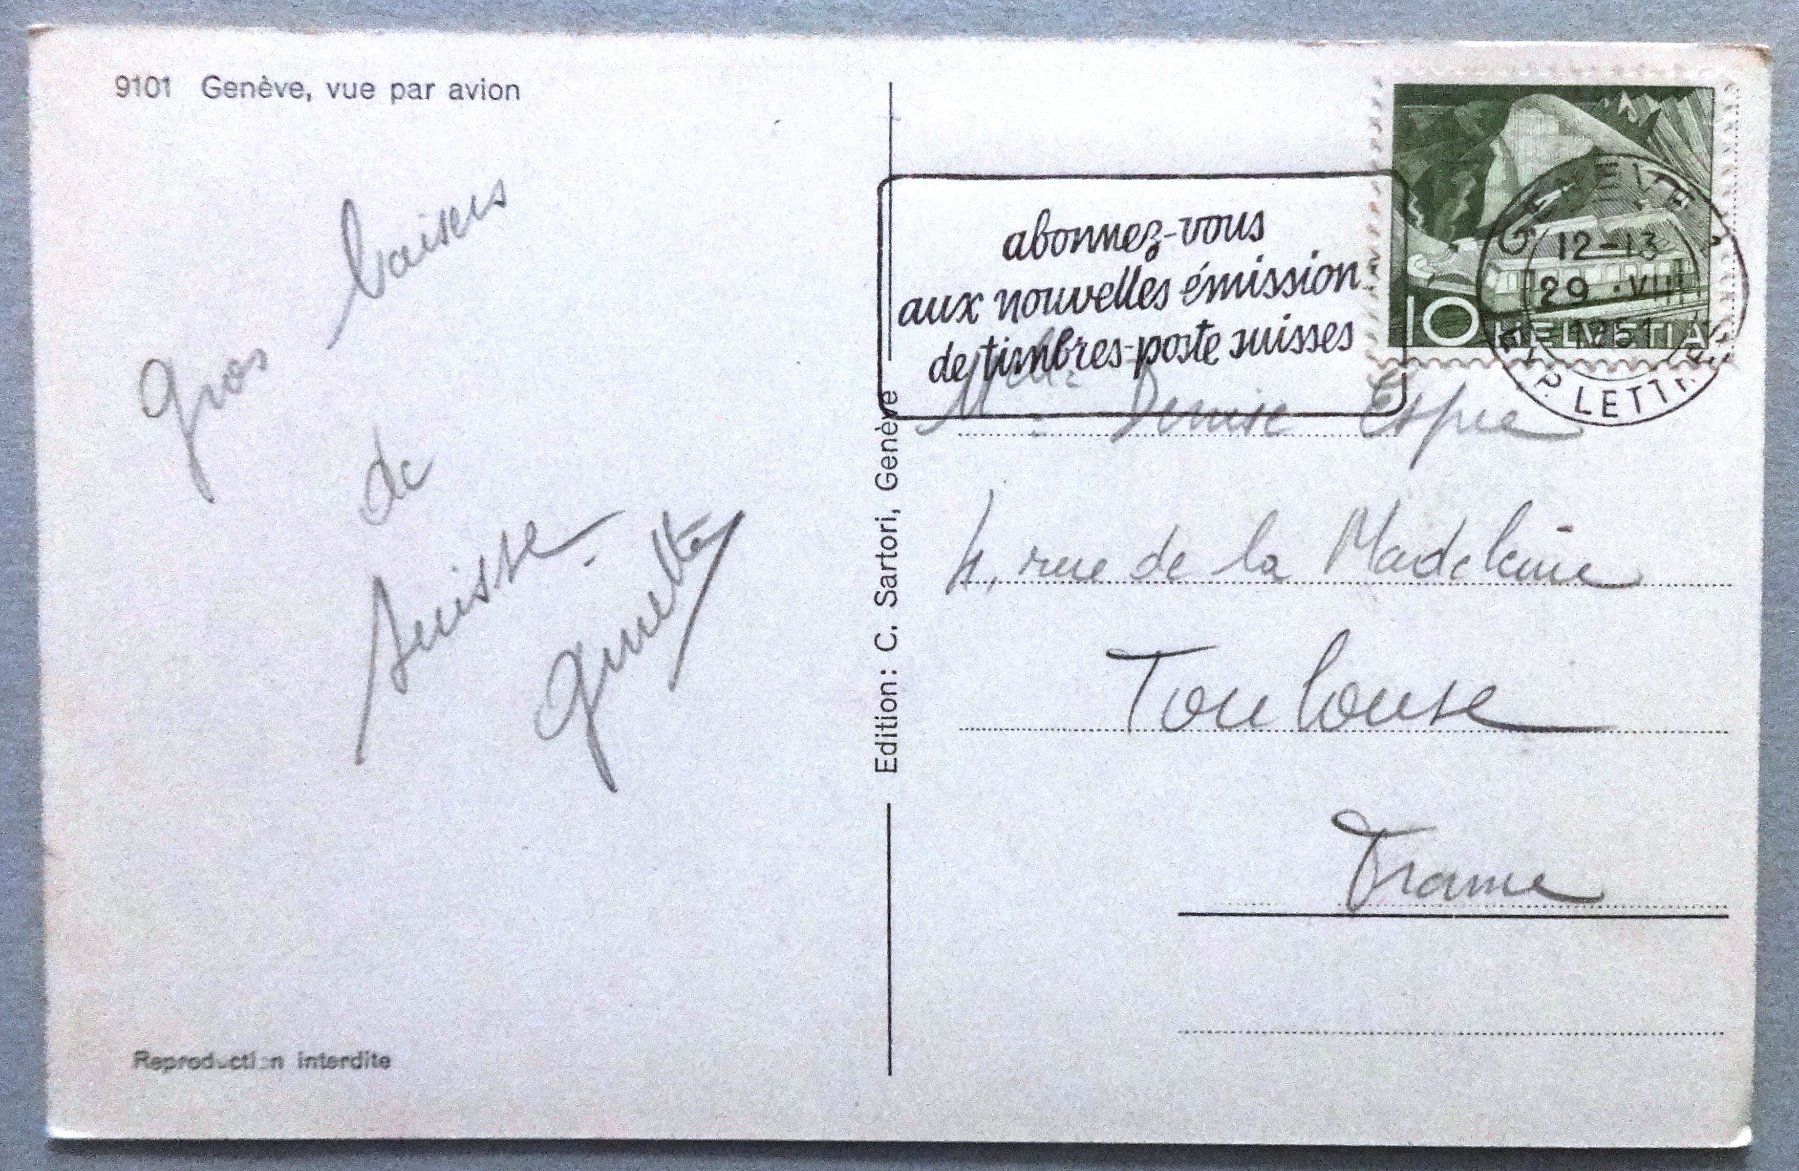 9101 Genève, vue par avion
Gros baisers
de
Suisse.
Ginette
Reproduction interdite
Edition: C. Sartori, Genève
abonnez-vous
aux nouvelles émission
de timbres-poste suisses
10 HELVETIA
GENEVE
12-13
29 VIII
1951
EXP. LETTRES
Melle Denise Espie
4, rue de la Madeleine
Toulouse
France